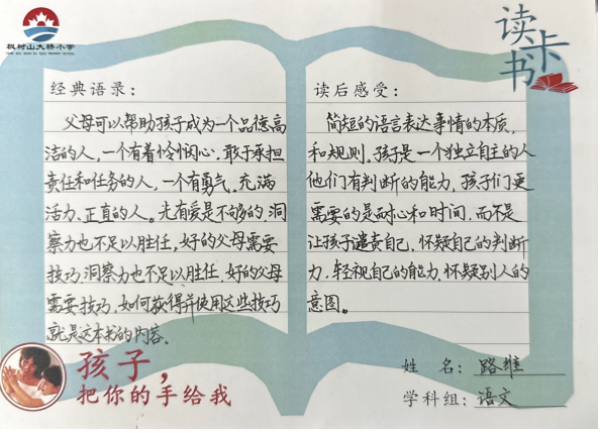 枫树山大桥小学
读书卡
经典语录：
父母可以帮助孩子成为一个品德高
洁的人，一个有着怜悯心，敢于承担
责任和任务的人，一个有勇气、充满
活力、正直的人。光有爱是不够的，洞
察力也不足以胜任，好的父母需要
技巧，洞察力也不足以胜任，好的父母
需要技巧，如何获得并使用这些技巧
就是这本书的内容。
读后感受：
简短的语言表达事情的本质，
和规则，孩子是一个独立自主的人
他们有判断的能力，孩子们更
需要的是耐心和时间，而不是
让孩子谴责自己，怀疑自己的判断
力，轻视自己的能力，怀疑别人的
意图。
孩子，
把你的手给我
姓 名：路雄
学科组：语文